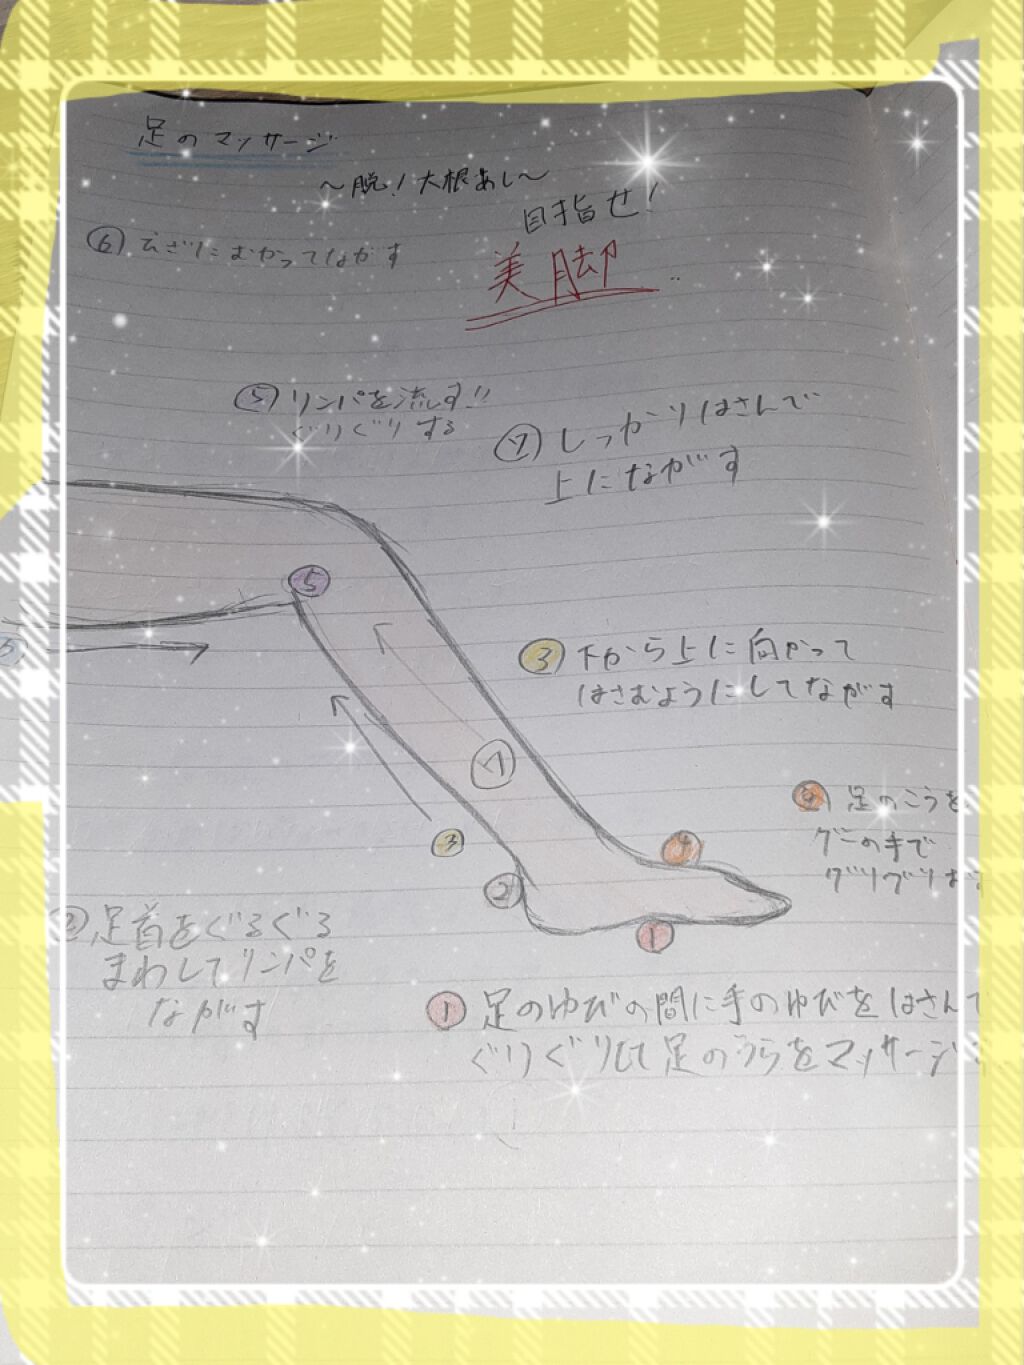 足のマッサージ
～脱！大根あし～
目指せ！
美脚
⑥ ひざにむかってながす
⑤ リンパを流す!!
ぐりぐりする
⑦ しっかりはさんで
上にながす
⑤
③ 下から上に向かって
はさむようにしてながす
⑦
④ 足のこうを
グーの手で
グリグリほ
③
④
②
①
② 足首をぐるぐる
まわしてリンパを
ながす
① 足のゆびの間に手のゆびをはさんで
ぐりぐりして足のうらをマッサージ